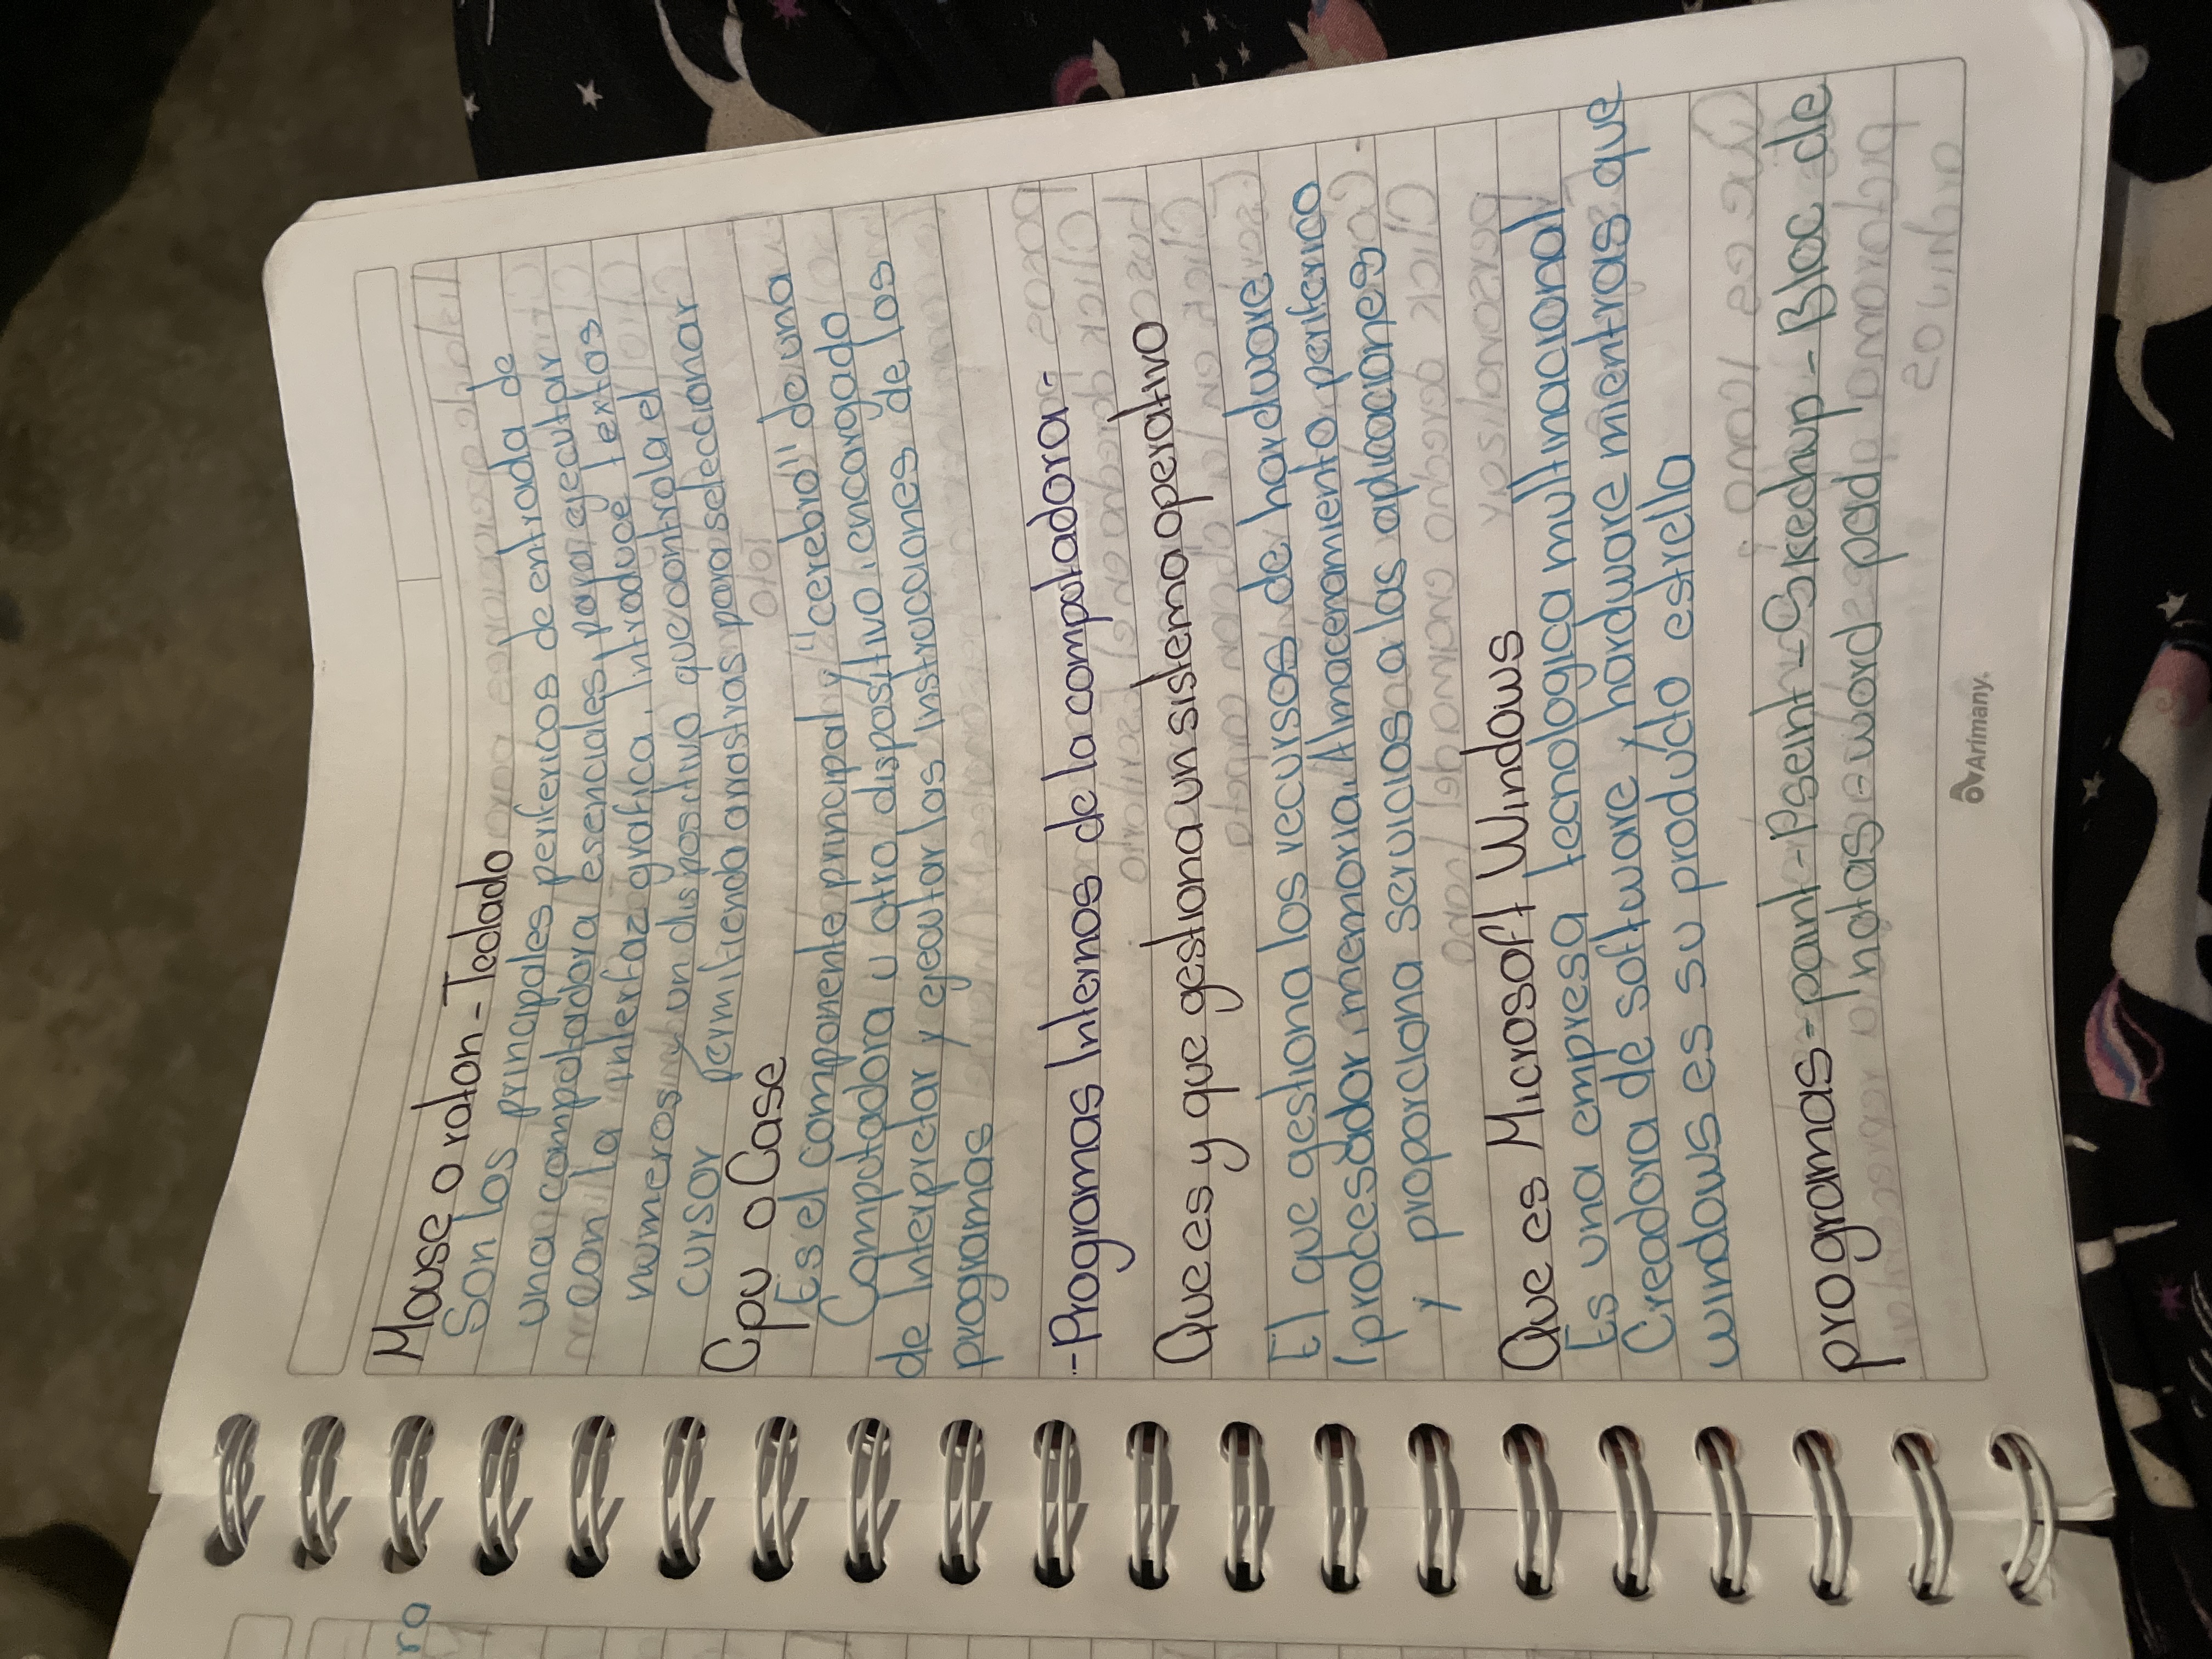 Mouse o raton - Teclado
Son los principales perifericos de entrada de
una computadora esenciales para ejecutar
con la interfaz grafica, Introduce textos
numeros y un dispositivo que controla el
cursor permitiendo arrastras para seleccionar
Cpu o Case
Es el componente principal y "cerebro" de una
Computadora u otro dispositivo, encargado
de Interpretar y ejecutar las Instrucciones de los
programas
-Programas Internos de la computadora-
Que es y que gestiona un sistema operativo
El que gestiona los recursos de hardware
(procesador, memoria, Almacenamiento, periferico
y proporciona servicios a las aplicaciones
Que es Microsoft Windows
Es una empresa tecnologica multinacional
Creadora de software y hardware mientras que
windows es su producto estrella
programas = paint - Pseint - Skechup - Bloc de
notas = word pad
Arimany.
ro